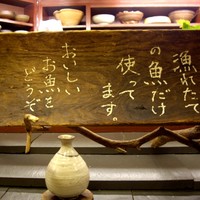 漁れたて
の魚だけ
使って
ます。
おいしい
お魚を
どうぞ